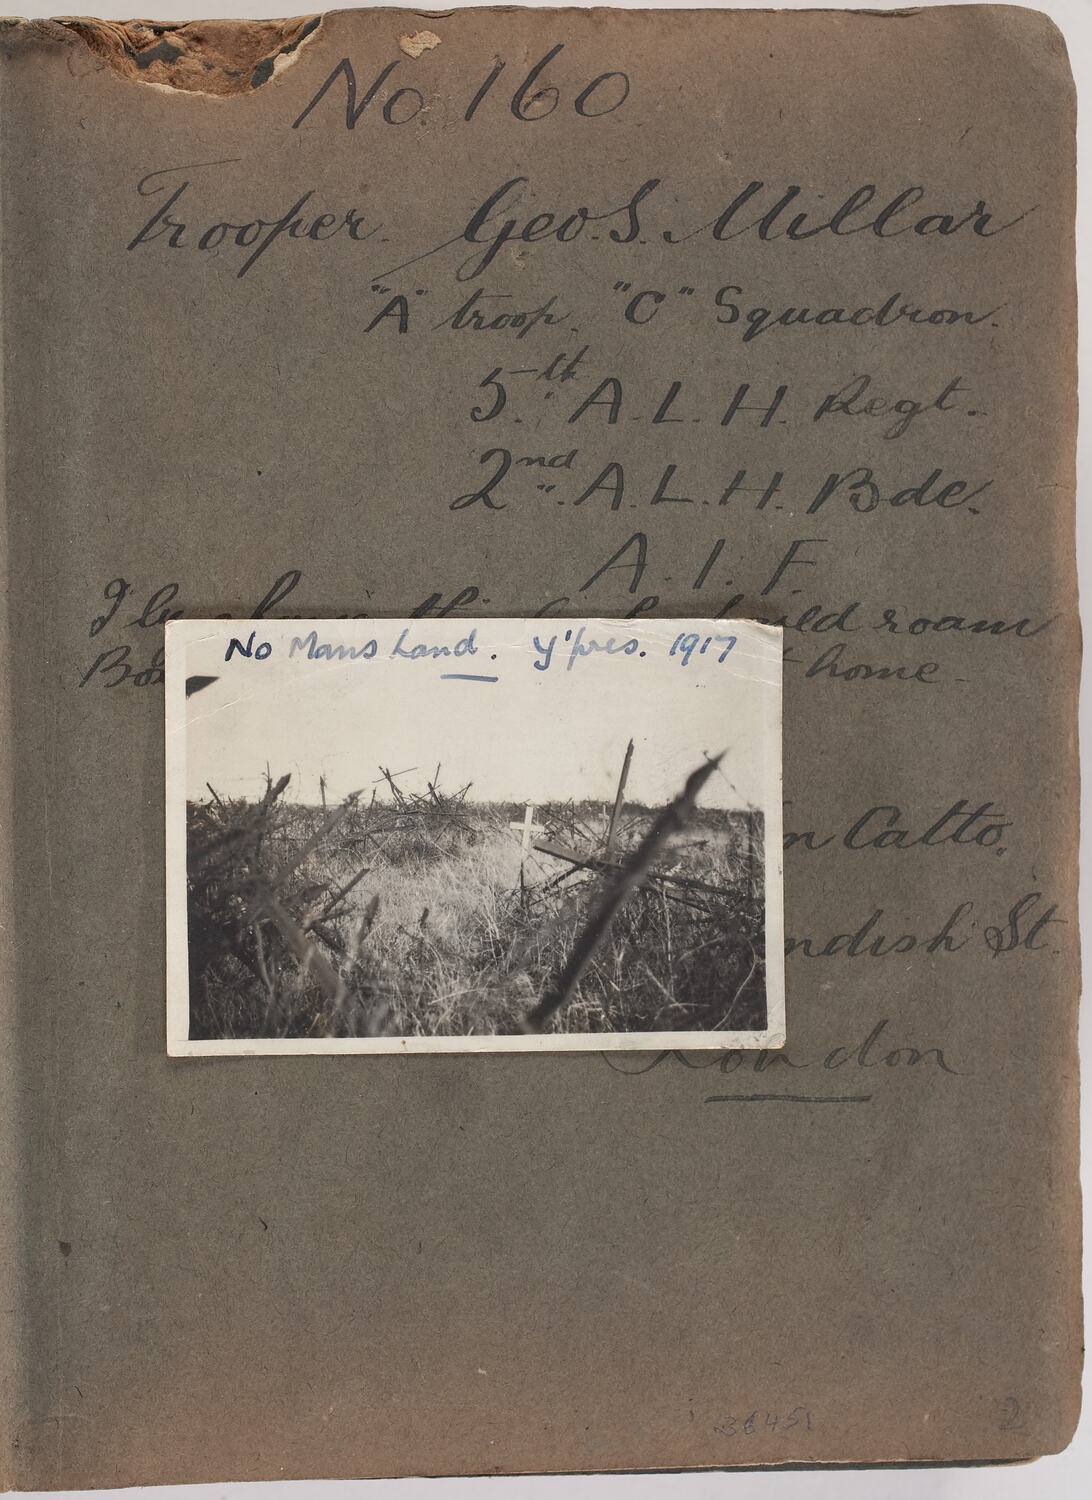 No. 160
Trooper. Geo. S. Millar
"A" troop. "C" Squadron.
5th A. L. H. Regt.
2nd A. L. H. Bde.
A. I. F.
roam
home
No Mans Land. Y'pres. 1917
Catto,
ndish St.
London
36451
2